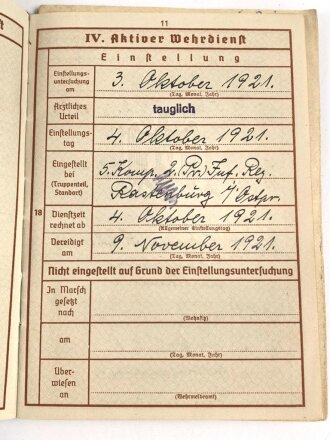 11
IV. Aktiver Wehrdienst
Einstellung
Einstellungs-
untersuchung
am
3. Oktober 1921.
(Tag, Monat, Jahr)
Ärztliches
Urteil
tauglich
Einstellungs-
tag
4. Oktober 1921.
(Tag, Monat, Jahr)
Eingestellt
bei
(Truppenteil,
Standort)
5. Komp. 2. (Pr.) Inf. Reg.
Rastenburg i/Ostpr.
18
Dienstzeit
rechnet ab
4. Oktober 1921.
(Allgemeiner Einstellungstag)
Vereidigt
am
9. November 1921.
(Tag, Monat, Jahr)
Nicht eingestellt auf Grund der Einstellungsuntersuchung
In Marsch
gesetzt
nach
(Wohnsitz)
am
(Tag, Monat, Jahr)
Über-
wiesen
an
(Wehrmeldeamt)